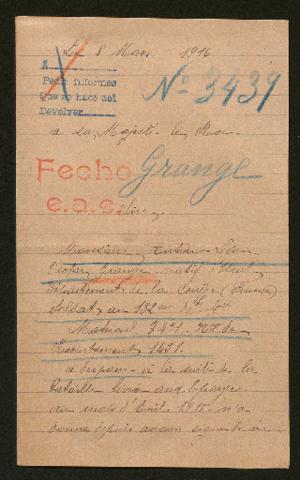 Le 8 Mars 1916
A
Pedir informes
Que no hace así
Devolver
Nº 3439
a sa Majesté le Roi
Fecho Grange
e.a.s. Sire,
Monsieur Léon
Victor Grange natif d'Ussel
Département de la Corrèze (France)
Soldat au
Matricule 3471 Nº de
Recrutement 1431
a disparu à la suite de la
Bataille livrée aux Eparges
au mois d'Avril 1915 n'a
donné depuis aucun signe de vie